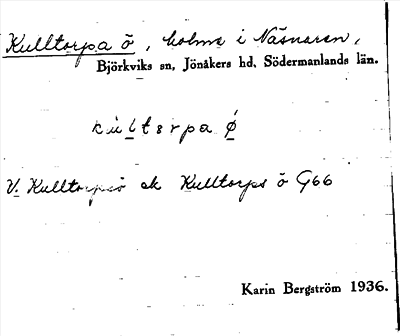 Kulltorpa ö, holme i Näsnaren,
Björkviks sn, Jönåkers hd, Södermanlands län.
kulltorpa ǿ
V. Kulltorpsö ek Kulltorps ö G66
Karin Bergström 1936.